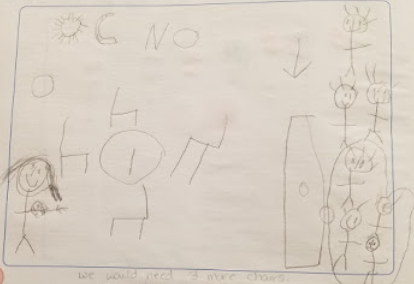 NO
we would need 3 more chairs.